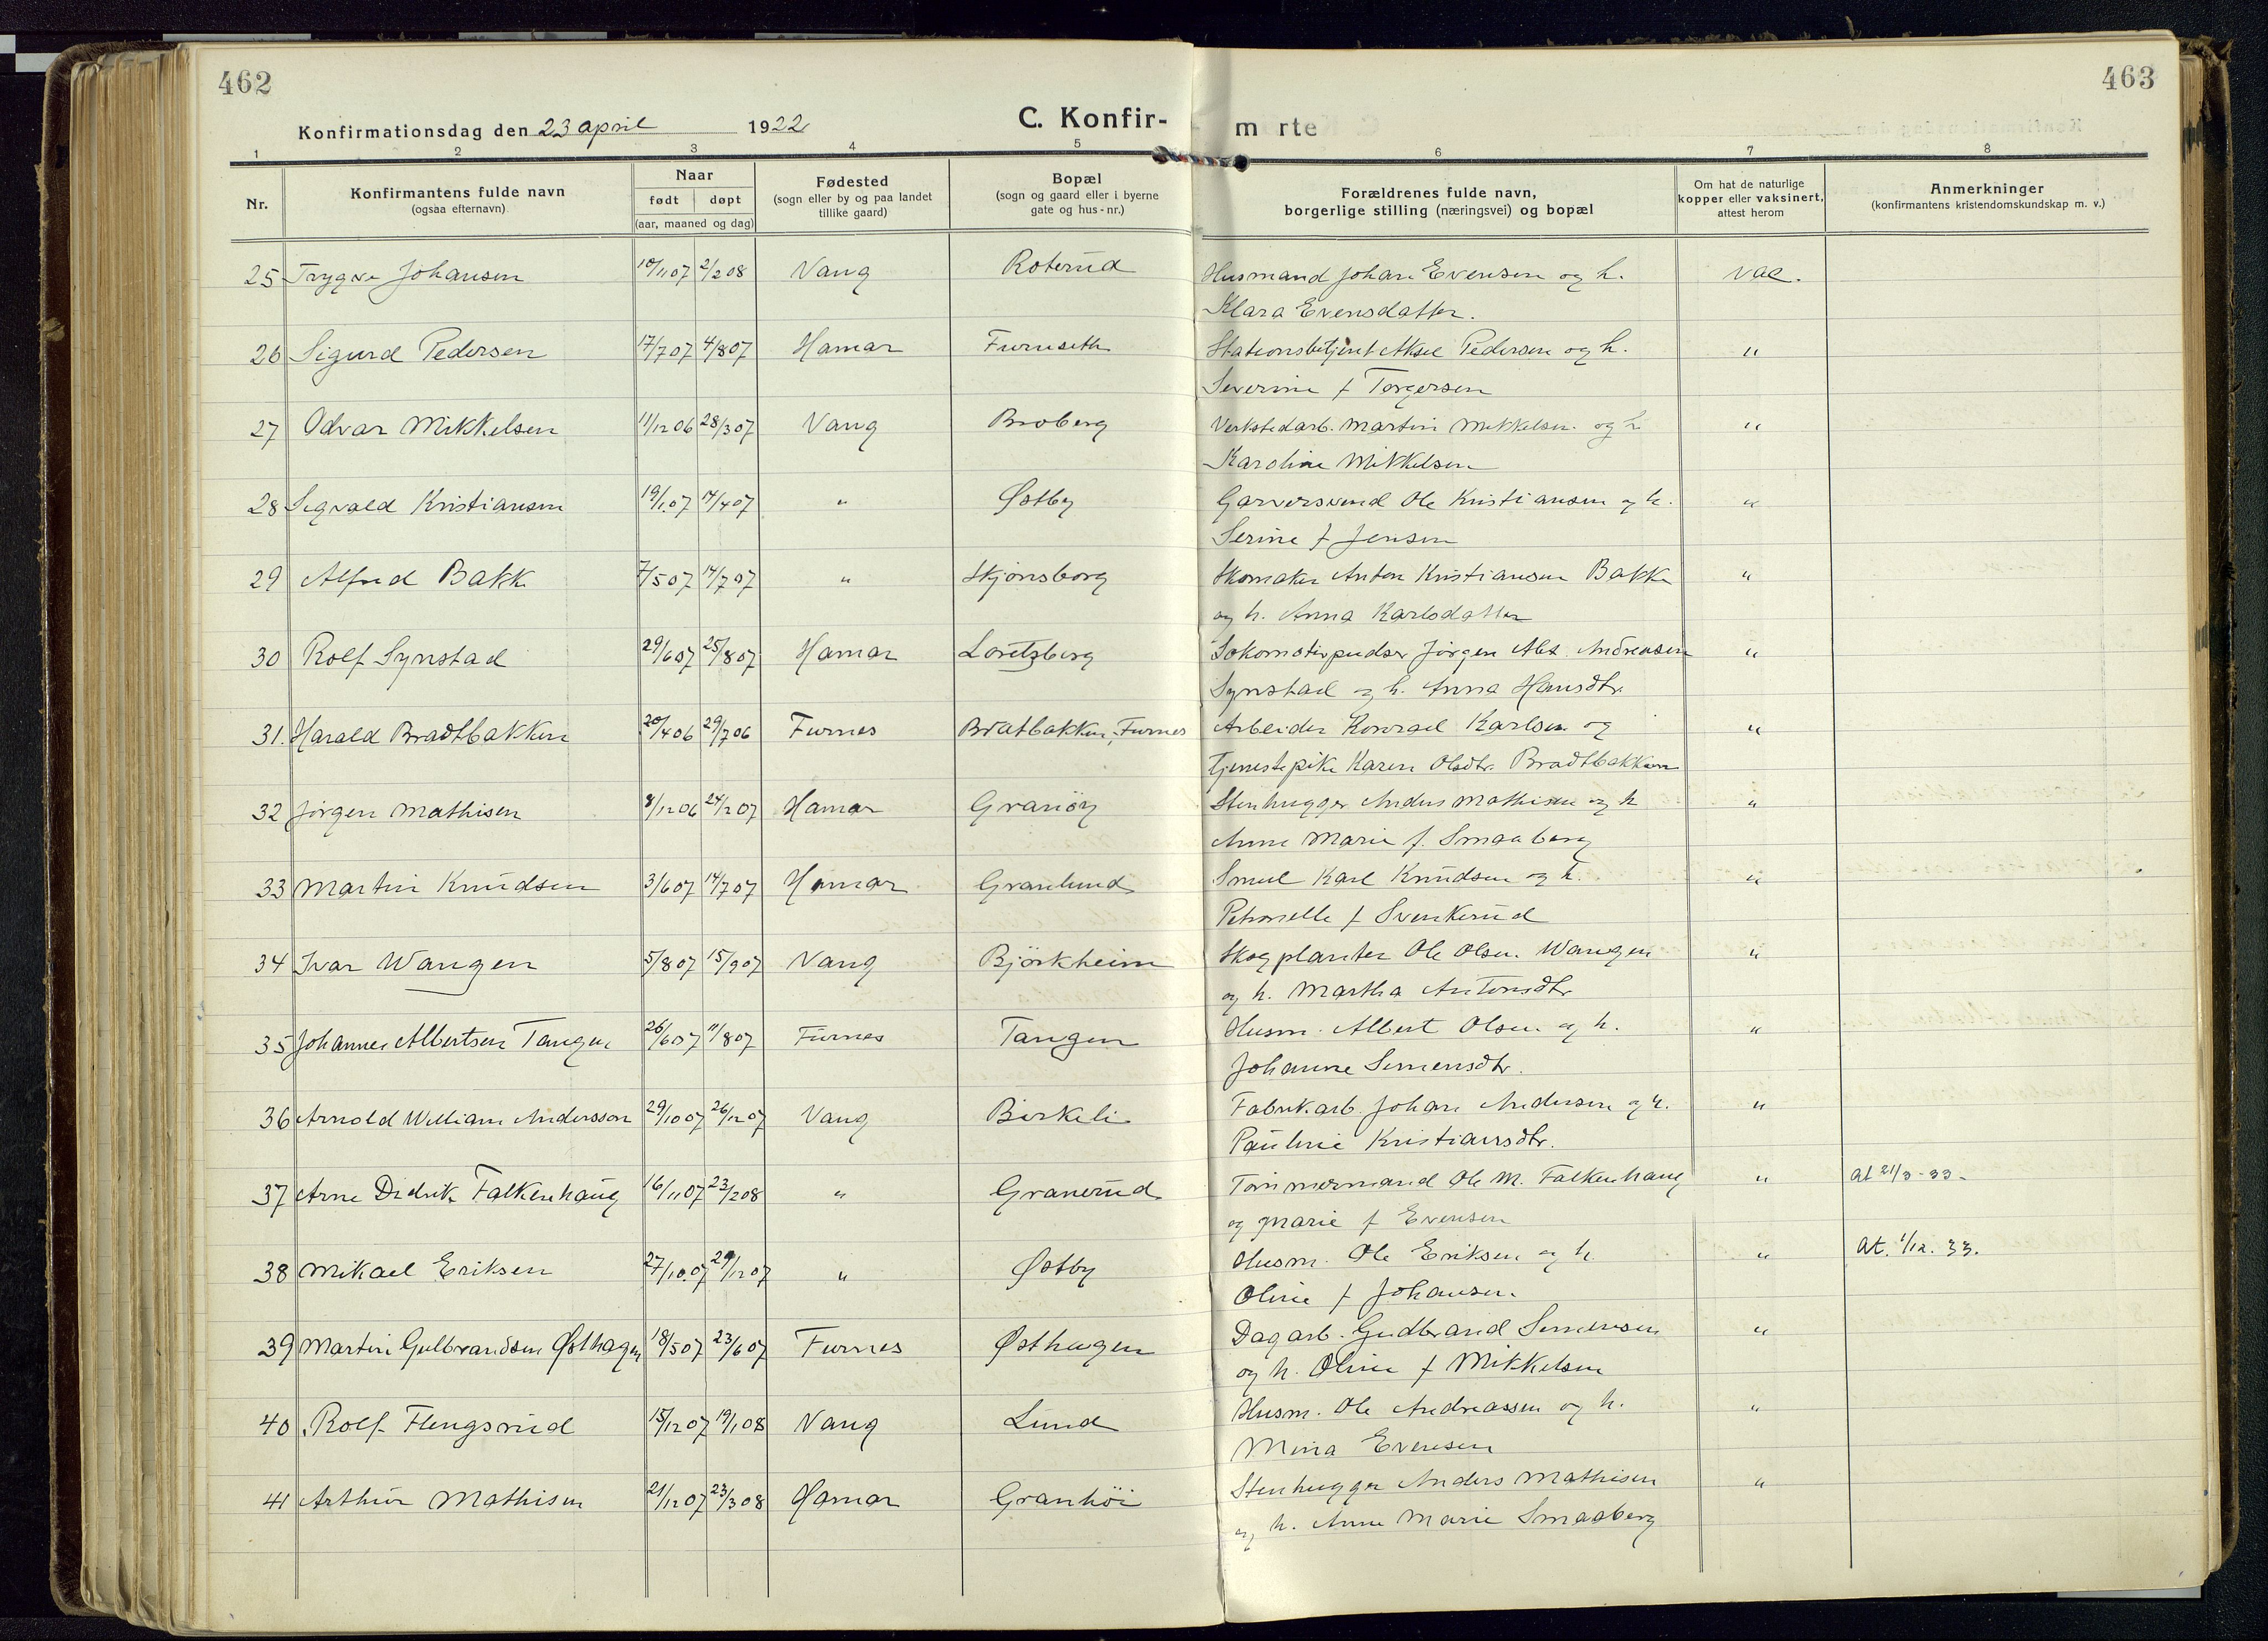 462
463
Konfirmationsdag den 23 april 1922
C. Konfirmerte
1 2 3 4 5 6 7 8
Nr.
Konfirmantens fulde navn
(ogsaa efternavn)
Naar
født døpt
(aar, maaned og dag)
Fødested
(sogn eller by og paa landet
tillike gaard)
Bopæl
(sogn og gaard eller i byerne
gate og hus-nr.)
Forældrenes fulde navn,
borgerlige stilling (næringsvei) og bopæl
Om hat de naturlige
kopper eller vaksinert,
attest herom
Anmerkninger
(konfirmantens kristendomskundskap m. v.)
25 Trygve Johansen 10/11 07 2/2 08 Vang Roterud Husmand Johan Evensen og h. vac.
Klara Evensdatter.
26 Sigurd Pedersen 17/7 07 4/8 07 Hamar Furuseth Stationsbetjent Aksel Pedersen og h. "
Severine f Torgersen
27 Odvar Mikkelsen 11/12 06 28/3 07 Vang Broberg Verkstedarb. Martin Mikkelsen og h "
Karoline Mikkelsen
28 Sigvald Kristiansen 19/1 07 14/4 07 " Østby Garversvend Ole Kristiansen og h. "
Serine f Jensen
29 Alfred Bakk 7/5 07 14/7 07 " Skjønsborg Skomaker Anton Kristiansen Bakke "
og h. Anna Karlsdatter
30 Rolf Synstad 29/6 07 25/8 07 Hamar Loretzberg Lokomotivpudser Jørgen Alet Andreasen "
Synstad og h. Anna Hansdtr.
31. Harald Bradtbakken 20/4 06 29/7 06 Furnes Bratbakken, Furnes Arbeider Konrad Karlsen og "
Tjenestepike Karen Olsdtr. Bradtbakken
32 Jørgen Mathisen 8/12 06 24/2 07 Hamar Granöy Stenhugger Anders Mathisen og h "
Anne Marie f. Smaaberg
33 Martin Knudsen 3/6 07 14/7 07 Hamar Granlund Smed Karl Knudsen og h. "
Petronelle f Svenkerud
34 Ivar Wangen 5/8 07 15/9 07 Vang Björkheim Skogplanter Ole Olsen Wangen "
og h. Martha Antonsdtr
35 Johannes Albertsen Tangen 26/6 07 11/8 07 Furnes Tangen Husm. Albert Olsen og h. "
Johanne Simensdtr.
36 Arnold William Andersson 29/10 07 26/12 07 Vang Birkeli Fabrikarb. Johan Andersen og h. "
Pauline Kristiansdtr.
37 Arne Didrik Falkenhaug 16/11 07 23/2 08 " Granerud Tømmermand Ole M. Falkenhaug " at 21/3-33.
og Marie f Evensen
38 Mikael Eriksen 27/10.07 29/12 07 " Østby Husm. Ole Eriksen og h. " At. 1/12. 33.
Oline f Johansen.
39 Martin Gulbrandsen Østhagen 18/5 07 23/6 07 Furnes Østhagen Dagarb. Gudbrand Simensen "
og h. Oline f Mikkelsen
40 Rolf Flengsrud 15/12 07 19/1 08 Vang Lund Husm. Ole Andreassen og h. "
Mina Evensen
41 Arthur Mathisen 21/12 07 23/3 08 Hamar Granhöi Stenhugger Anders Mathisen "
og h. Anne Marie Smaaberg